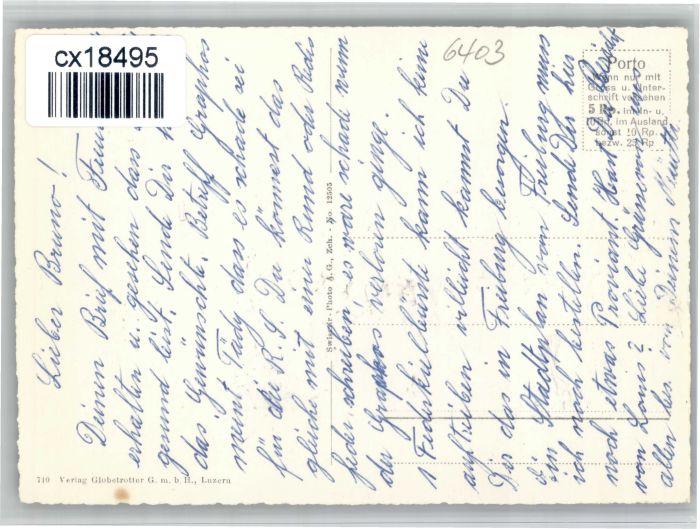 cx18495
6403
Porto
Wenn nur mit
Gruss u. Unter-
schrift versehen
5 Rp. im In- u.
10 Rp. im Ausland
sonst 10 Rp.
bezw. 25 Rp
Lieber Bruno!
Deinen Brief mit
erhalten u. gesehen das
gesund bist. Sende Dir
das Gewünschte. Betreff Graphos
meint Tädy dass es schade sei
für die R.S. Du könntest das
gleiche mit einer Rund oder Redis
feder schreiben, es wäre schade wenn
der Graphos verloren ginge.
1 Federkielbürste kann ich keine
auftreiben villeicht kannst Du
Dir das in Freiburg besorgen.
Ein Stadtplan von Freiburg muss
ich noch bestellen. Sende Dir hier
noch etwas Proviant. Hast Du
von Louis? Liebe Grüsse von
allen bes. von Deinem Mutti.
Swisair-Photo A.G., Zch. - No. 12505
710 Verlag Globetrotter G. m. b. H., Luzern